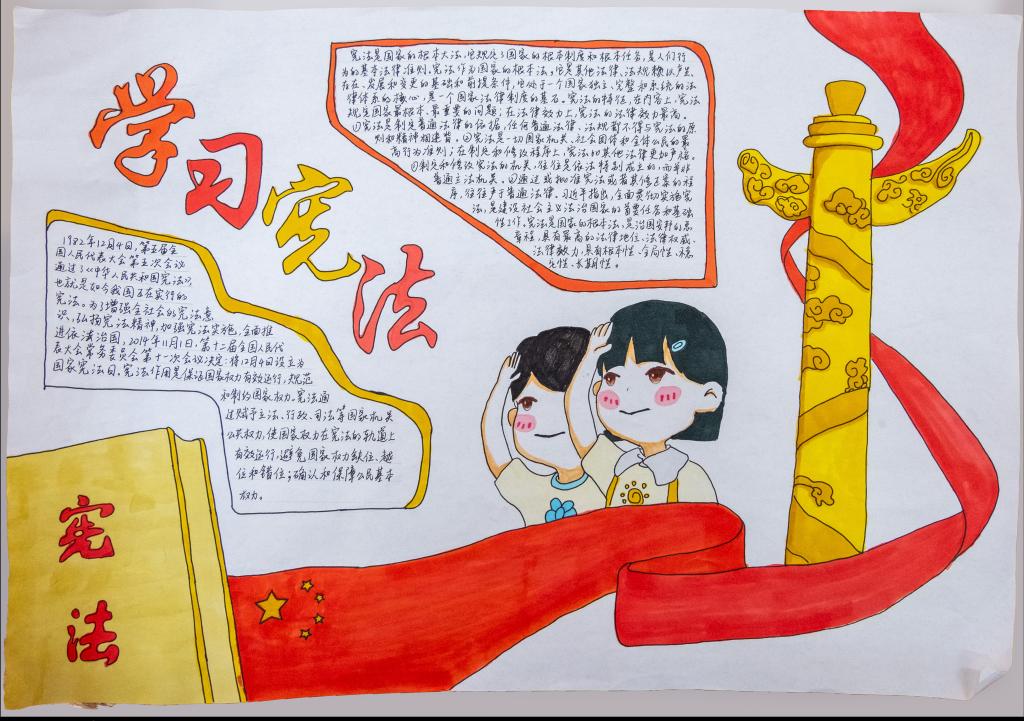 学习宪法
宪法是国家的根本大法，它规定了国家的根本制度和根本任务，是人们行
为的基本法律准则。宪法作为国家的根本法，它是其他法律、法规赖以产生、
存在、发展和变更的基础和前提条件，它处于一个国家独立、完整和系统的法
律体系的核心，是一个国家法律制度的基石。宪法的特征，在内容上，宪法
规定国家最根本、最重要的问题；在法律效力上，宪法的法律效力最高。
①宪法是制定普通法律的依据，任何普通法律、法规都不得与宪法的原
则和精神相违背。②宪法是一切国家机关、社会团体和全体公民的最
高行为准则；在制定和修改程序上，宪法比其他法律更加严格。
①制定和修改宪法的机关，往往是依法特别成立的，而并非
普通立法机关、②通过或批准宪法或者其修正案的程
序，往往严于普通法律。习近平指出，全面贯彻实施宪
法，是建设社会主义法治国家的首要任务和基础
性工作。宪法是国家的根本法，是治国安邦的总
章程，具有最高的法律地位、法律权威、
法律效力，具有根本性、全局性、稳
定性、长期性。
1982年12月4日，第五届全
国人民代表大会第五次会议
通过了《中华人民共和国宪法》，
也就是如今我国正在实行的
宪法。为了增强全社会的宪法意
识，弘扬宪法精神，加强宪法实施，全面推
进依法治国，2014年11月1日，第十二届全国人民代
表大会常务委员会第十一次会议决定：将12月4日设立为
国家宪法日。宪法作用是保证国家权力有效运行，规范
和制约国家权力。宪法通
过赋予立法、行政、司法等国家机关
公共权力，使国家权力在宪法的轨道上
有效运行，避免国家权力缺位、越
位和错位；确认和保障公民基本
权力。
宪
法